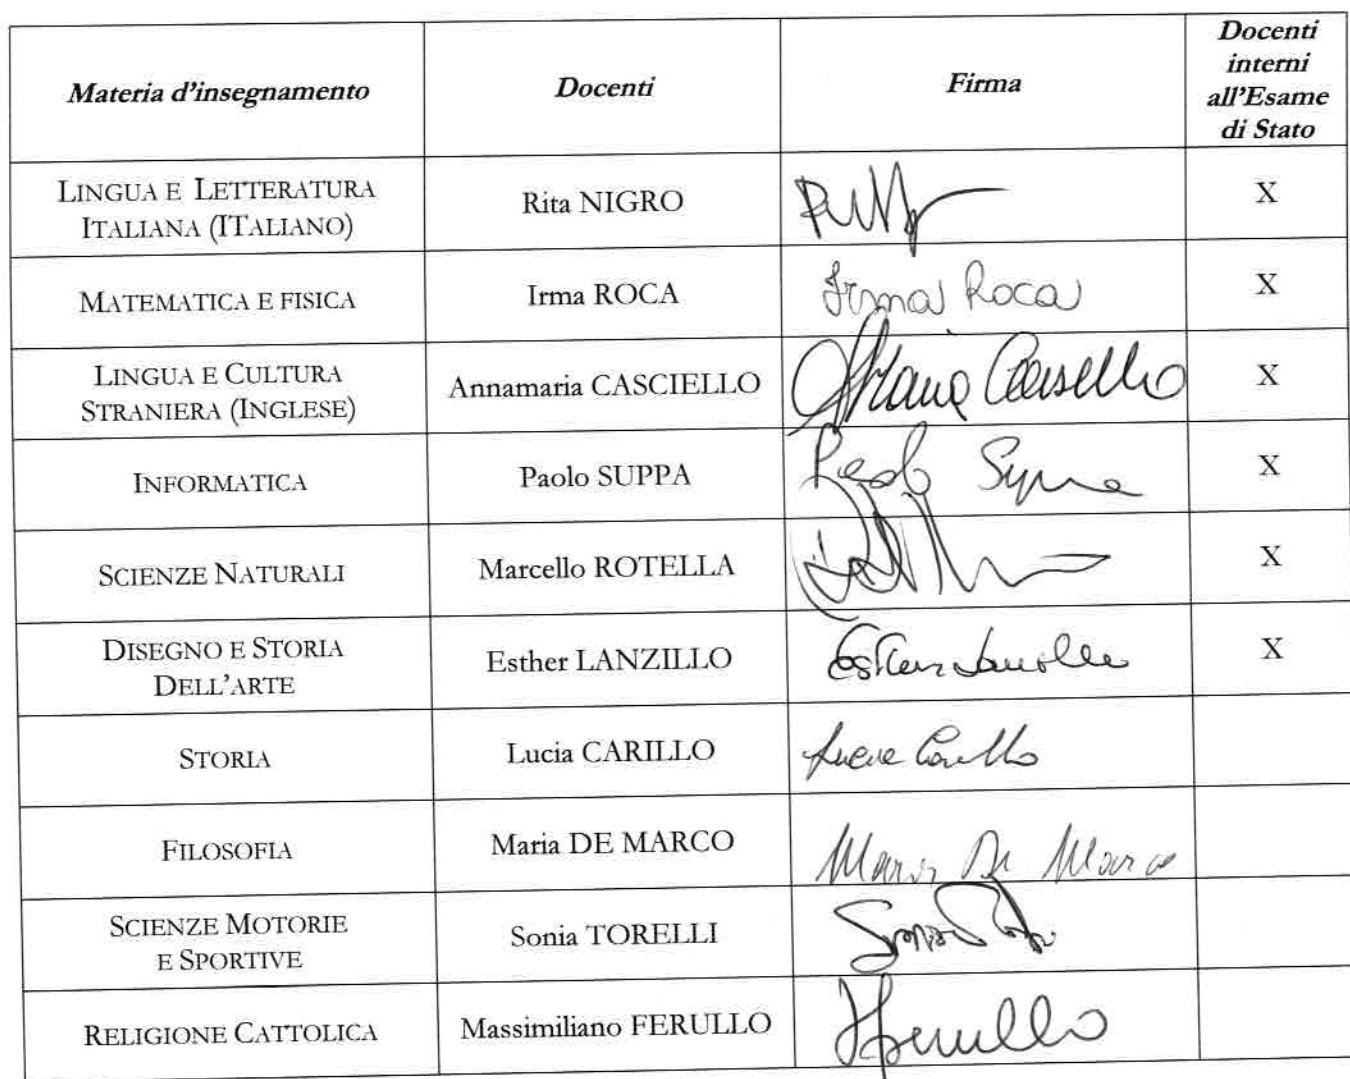 Materia d'insegnamento Docenti Firma Docenti
interni
all'Esame
di Stato
LINGUA E LETTERATURA
ITALIANA (ITALIANO) Rita NIGRO X
MATEMATICA E FISICA Irma ROCA Irma Roca X
LINGUA E CULTURA
STRANIERA (INGLESE) Annamaria CASCIELLO X
INFORMATICA Paolo SUPPA Paolo Suppa X
SCIENZE NATURALI Marcello ROTELLA X
DISEGNO E STORIA
DELL'ARTE Esther LANZILLO Esther Lanzillo X
STORIA Lucia CARILLO Lucia Carillo
FILOSOFIA Maria DE MARCO Maria De Marco
SCIENZE MOTORIE
E SPORTIVE Sonia TORELLI
RELIGIONE CATTOLICA Massimiliano FERULLO Ferullo